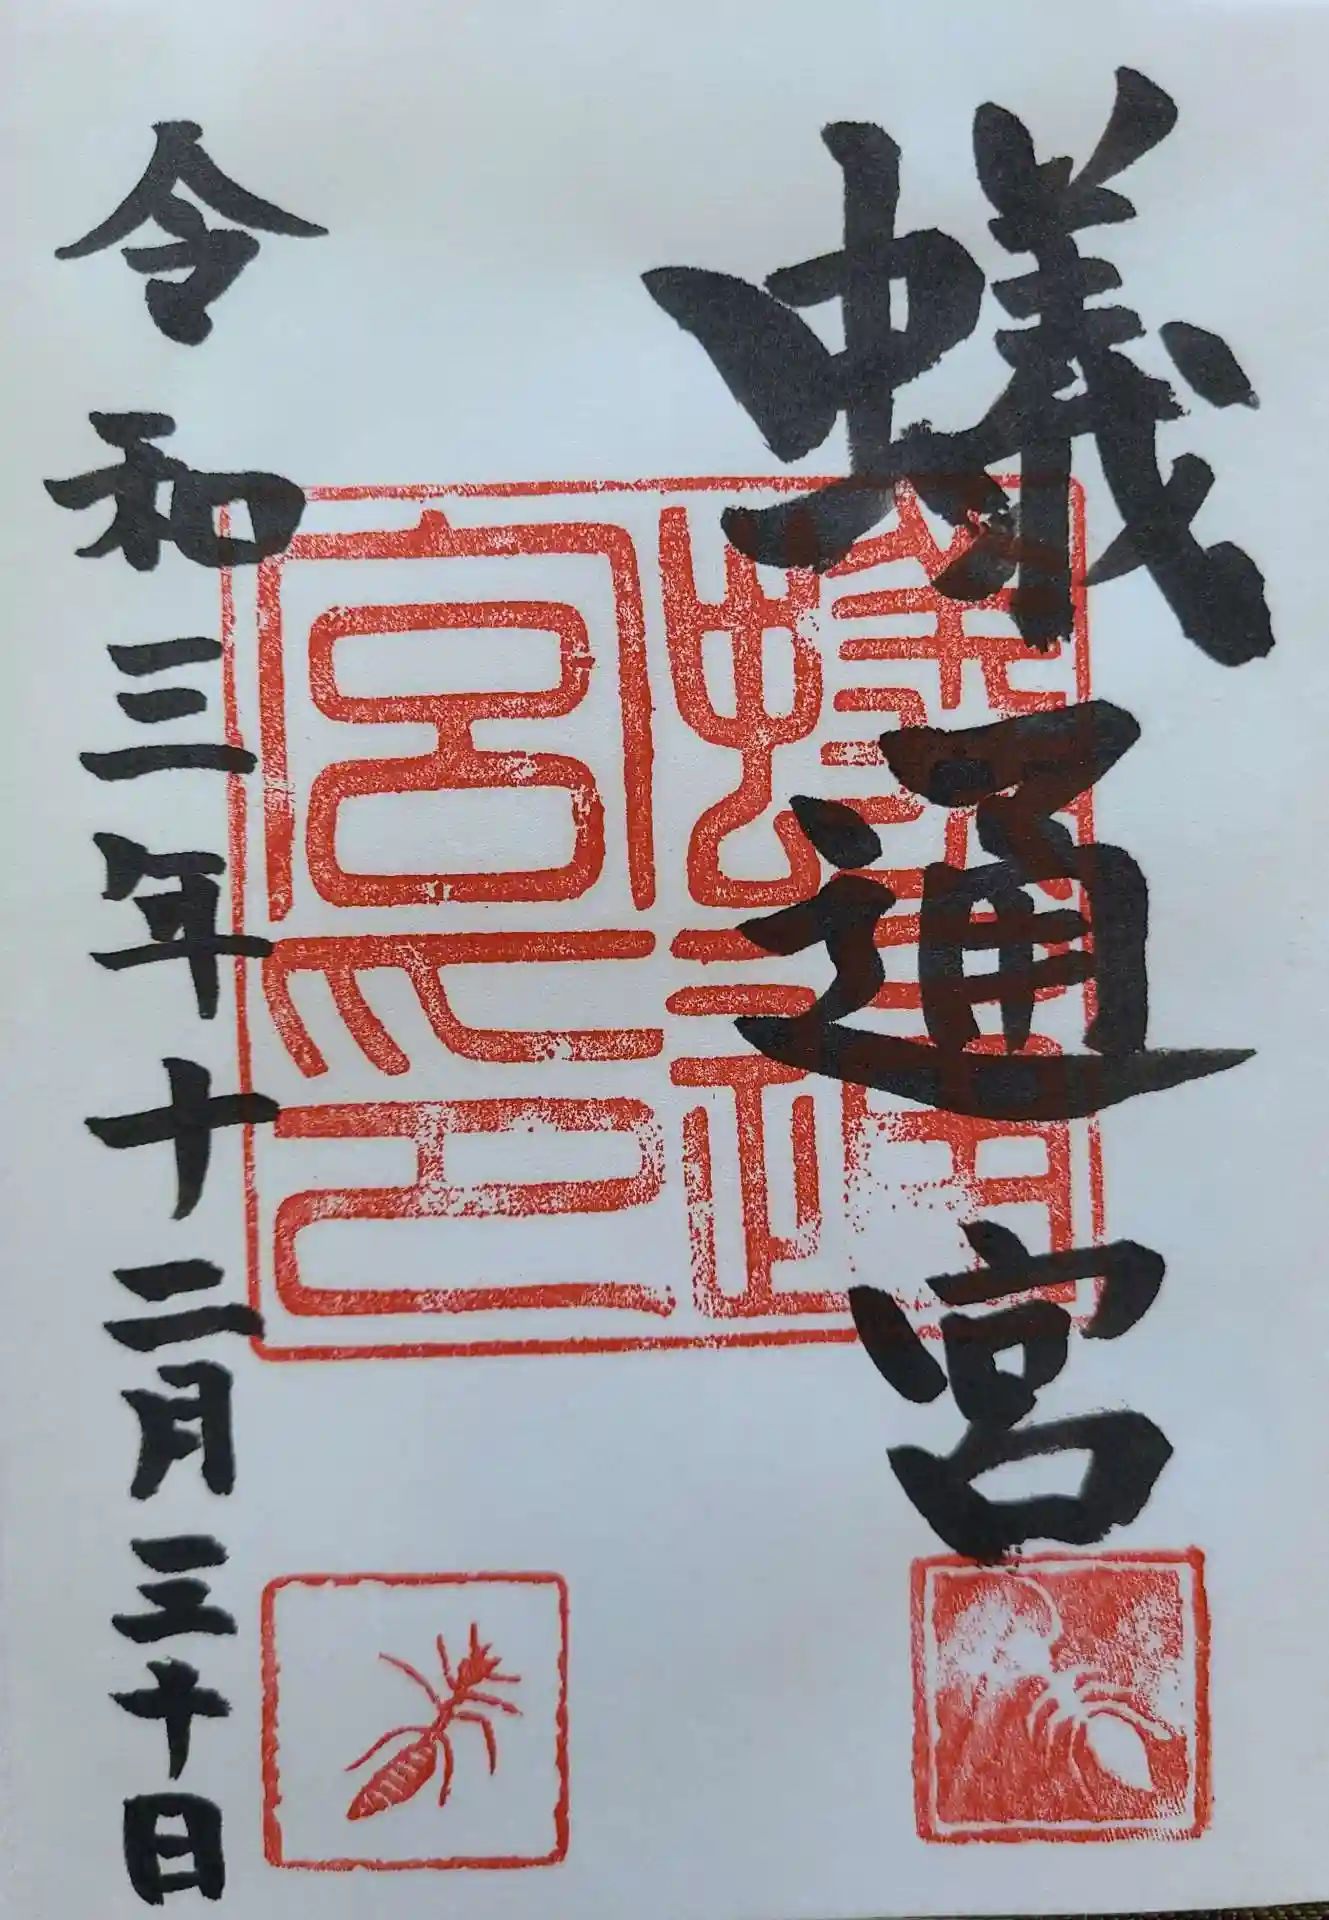 蟻通宮
令和三年十二月三十日
蟻通神宮之印